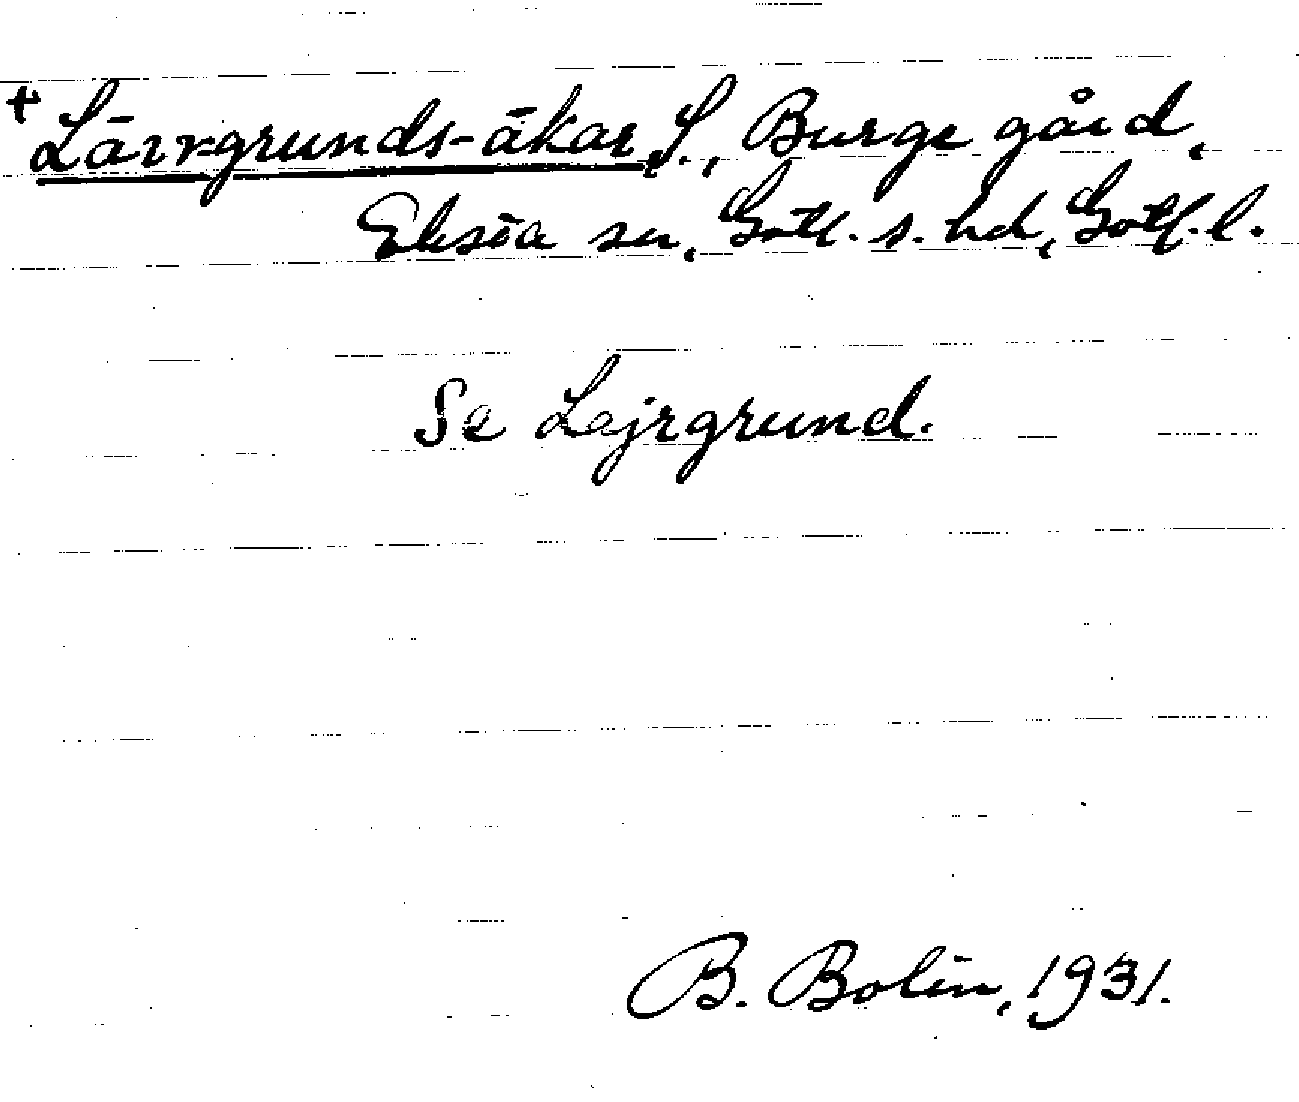 + Lärr-grunds-åkar, S., Burge gård,
Eksta sn, Gotl. s. hd, Gotl. l.
Se Lajrgrund.
B. Bolin, 1931.